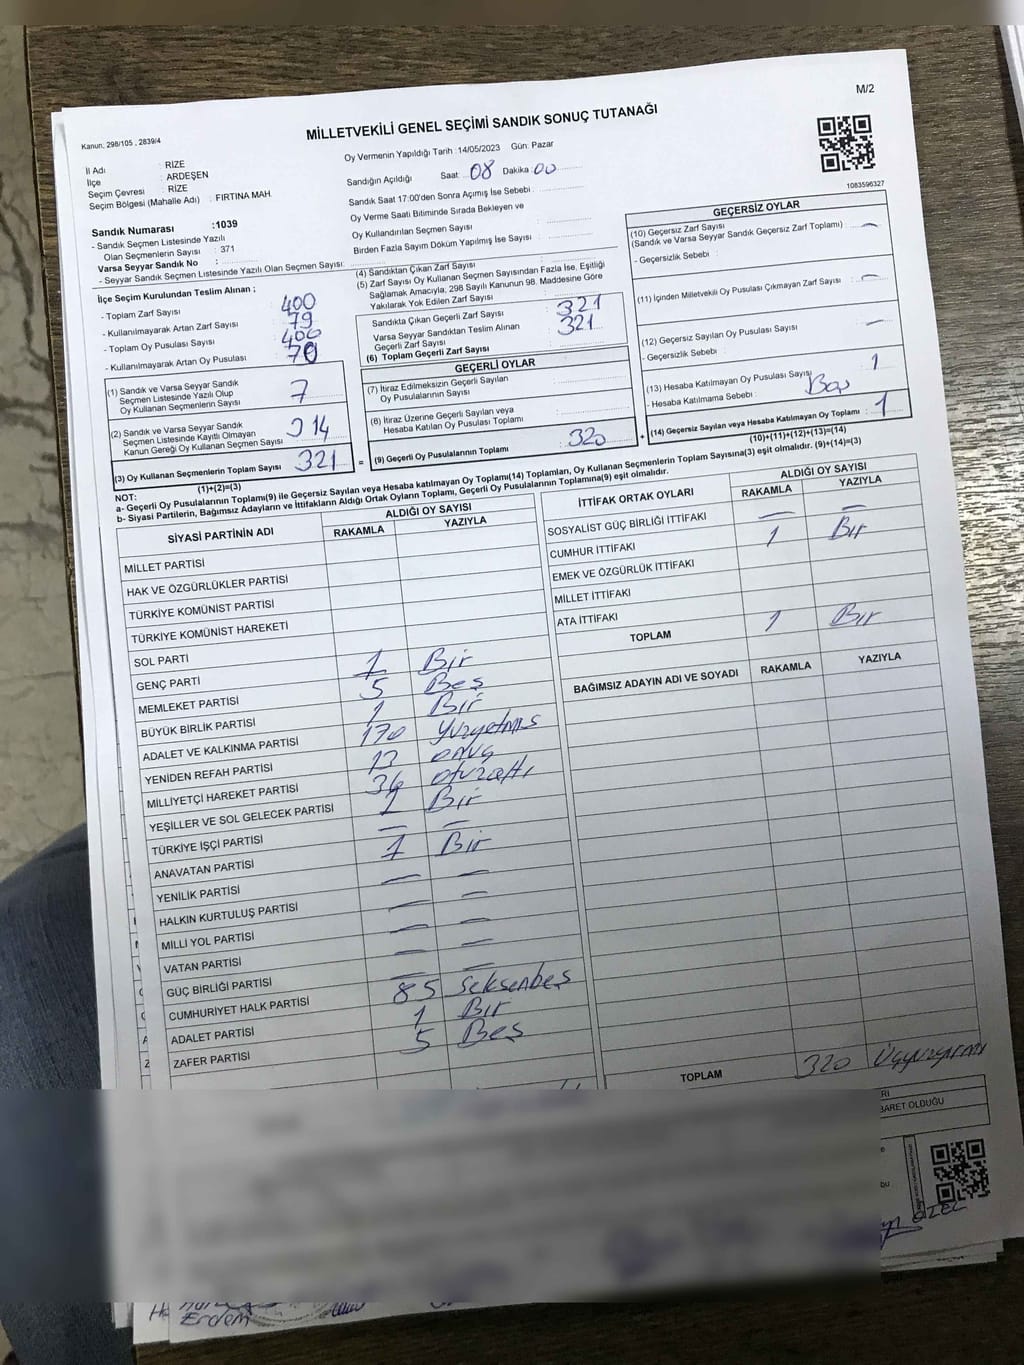 M/2
Kanun, 298/105 , 2839/4
MİLLETVEKİLİ GENEL SEÇİMİ SANDIK SONUÇ TUTANAĞI
1083596327
İl Adı : RİZE
İlçe : ARDEŞEN
Seçim Çevresi : RİZE
Seçim Bölgesi (Mahalle Adı) : FIRTINA MAH.
Sandık Numarası :1039
- Sandık Seçmen Listesinde Yazılı
Olan Seçmenlerin Sayısı : 371
Varsa Seyyar Sandık No :
- Seyyar Sandık Seçmen Listesinde Yazılı Olan Seçmen Sayısı:
Oy Vermenin Yapıldığı Tarih :14/05/2023 Gün: Pazar
Sandığın Açıldığı Saat 08 Dakika 00
Sandık Saat 17:00'den Sonra Açmış İse Sebebi :
Oy Verme Saati Bitiminde Sırada Bekleyen ve
Oy Kullandırılan Seçmen Sayısı :
Birden Fazla Sayım Döküm Yapılmış İse Sayısı :
İlçe Seçim Kurulundan Teslim Alınan ;
- Toplam Zarf Sayısı : 400
- Kullanılmayarak Artan Zarf Sayısı : 79
- Toplam Oy Pusulası Sayısı : 400
- Kullanılmayarak Artan Oy Pusulası :
(1) Sandık ve Varsa Seyyar Sandık
Seçmen Listesinde Yazılı Olup
Oy Kullanan Seçmenlerin Sayısı : 7
(2) Sandık ve Varsa Seyyar Sandık
Seçmen Listesinde Kayıtlı Olmayan
Kanun Gereği Oy Kullanan Seçmen Sayısı : 314
(3) Oy Kullanan Seçmenlerin Toplam Sayısı : 321
(1)+(2)=(3)
(4) Sandıktan Çıkan Zarf Sayısı :
(5) Zarf Sayısı Oy Kullanan Seçmen Sayısından Fazla İse, Eşitliği
Sağlamak Amacıyla, 298 Sayılı Kanunun 98. Maddesine Göre
Yakılarak Yok Edilen Zarf Sayısı :
Sandıkta Çıkan Geçerli Zarf Sayısı : 321
Varsa Seyyar Sandıktan Teslim Alınan
Geçerli Zarf Sayısı : 321
(6) Toplam Geçerli Zarf Sayısı :
GEÇERLİ OYLAR
(7) İtiraz Edilmeksizin Geçerli Sayılan
Oy Pusulalarının Sayısı :
(8) İtiraz Üzerine Geçerli Sayılan veya
Hesaba Katılan Oy Pusulası Toplamı :
= (9) Geçerli Oy Pusulalarının Toplamı : 320
GEÇERSİZ OYLAR
(10) Geçersiz Zarf Sayısı : —
(Sandık ve Varsa Seyyar Sandık Geçersiz Zarf Toplamı)
- Geçersizlik Sebebi :
(11) İçinden Milletvekili Oy Pusulası Çıkmayan Zarf Sayısı : —
(12) Geçersiz Sayılan Oy Pusulası Sayısı : —
- Geçersizlik Sebebi :
(13) Hesaba Katılmayan Oy Pusulası Sayısı : 1
- Hesaba Katılmama Sebebi : Boş
+ (14) Geçersiz Sayılan veya Hesaba Katılmayan Oy Toplamı : 1
(10)+(11)+(12)+(13)=(14)
NOT:
a- Geçerli Oy Pusulalarının Toplamı(9) ile Geçersiz Sayılan veya Hesaba katılmayan Oy Toplamı(14) Toplamları, Oy Kullanan Seçmenlerin Toplam Sayısına(3) eşit olmalıdır. (9)+(14)=(3)
b- Siyasi Partilerin, Bağımsız Adayların ve İttifakların Aldığı Ortak Oyların Toplamı, Geçerli Oy Pusulalarının Toplamına(9) eşit olmalıdır.
SİYASİ PARTİNİN ADI ALDIĞI OY SAYISI
RAKAMLA YAZIYLA
MİLLET PARTİSİ
HAK VE ÖZGÜRLÜKLER PARTİSİ
TÜRKİYE KOMÜNİST PARTİSİ
TÜRKİYE KOMÜNİST HAREKETİ
SOL PARTİ
GENÇ PARTİ 1 Bir
MEMLEKET PARTİSİ 5 Beş
BÜYÜK BİRLİK PARTİSİ 1 Bir
ADALET VE KALKINMA PARTİSİ 170 Yüzyetmiş
YENİDEN REFAH PARTİSİ 13 onüç
MİLLİYETÇİ HAREKET PARTİSİ 36 otuzaltı
YEŞİLLER VE SOL GELECEK PARTİSİ 1 Bir
TÜRKİYE İŞÇİ PARTİSİ — —
ANAVATAN PARTİSİ 1 Bir
YENİLİK PARTİSİ — —
HALKIN KURTULUŞ PARTİSİ — —
MİLLİ YOL PARTİSİ — —
VATAN PARTİSİ — —
GÜÇ BİRLİĞİ PARTİSİ — —
CUMHURİYET HALK PARTİSİ 85 seksenbeş
ADALET PARTİSİ 1 Bir
ZAFER PARTİSİ 5 Beş
İTTİFAK ORTAK OYLARI ALDIĞI OY SAYISI
RAKAMLA YAZIYLA
SOSYALİST GÜÇ BİRLİĞİ İTTİFAKI — —
CUMHUR İTTİFAKI 1 Bir
EMEK VE ÖZGÜRLÜK İTTİFAKI
MİLLET İTTİFAKI
ATA İTTİFAKI
TOPLAM 1 Bir
BAĞIMSIZ ADAYIN ADI VE SOYADI RAKAMLA YAZIYLA
TOPLAM 320 Üçyüzyirmi
RI
BARET OLDUĞU
ÖZEL
Erdem